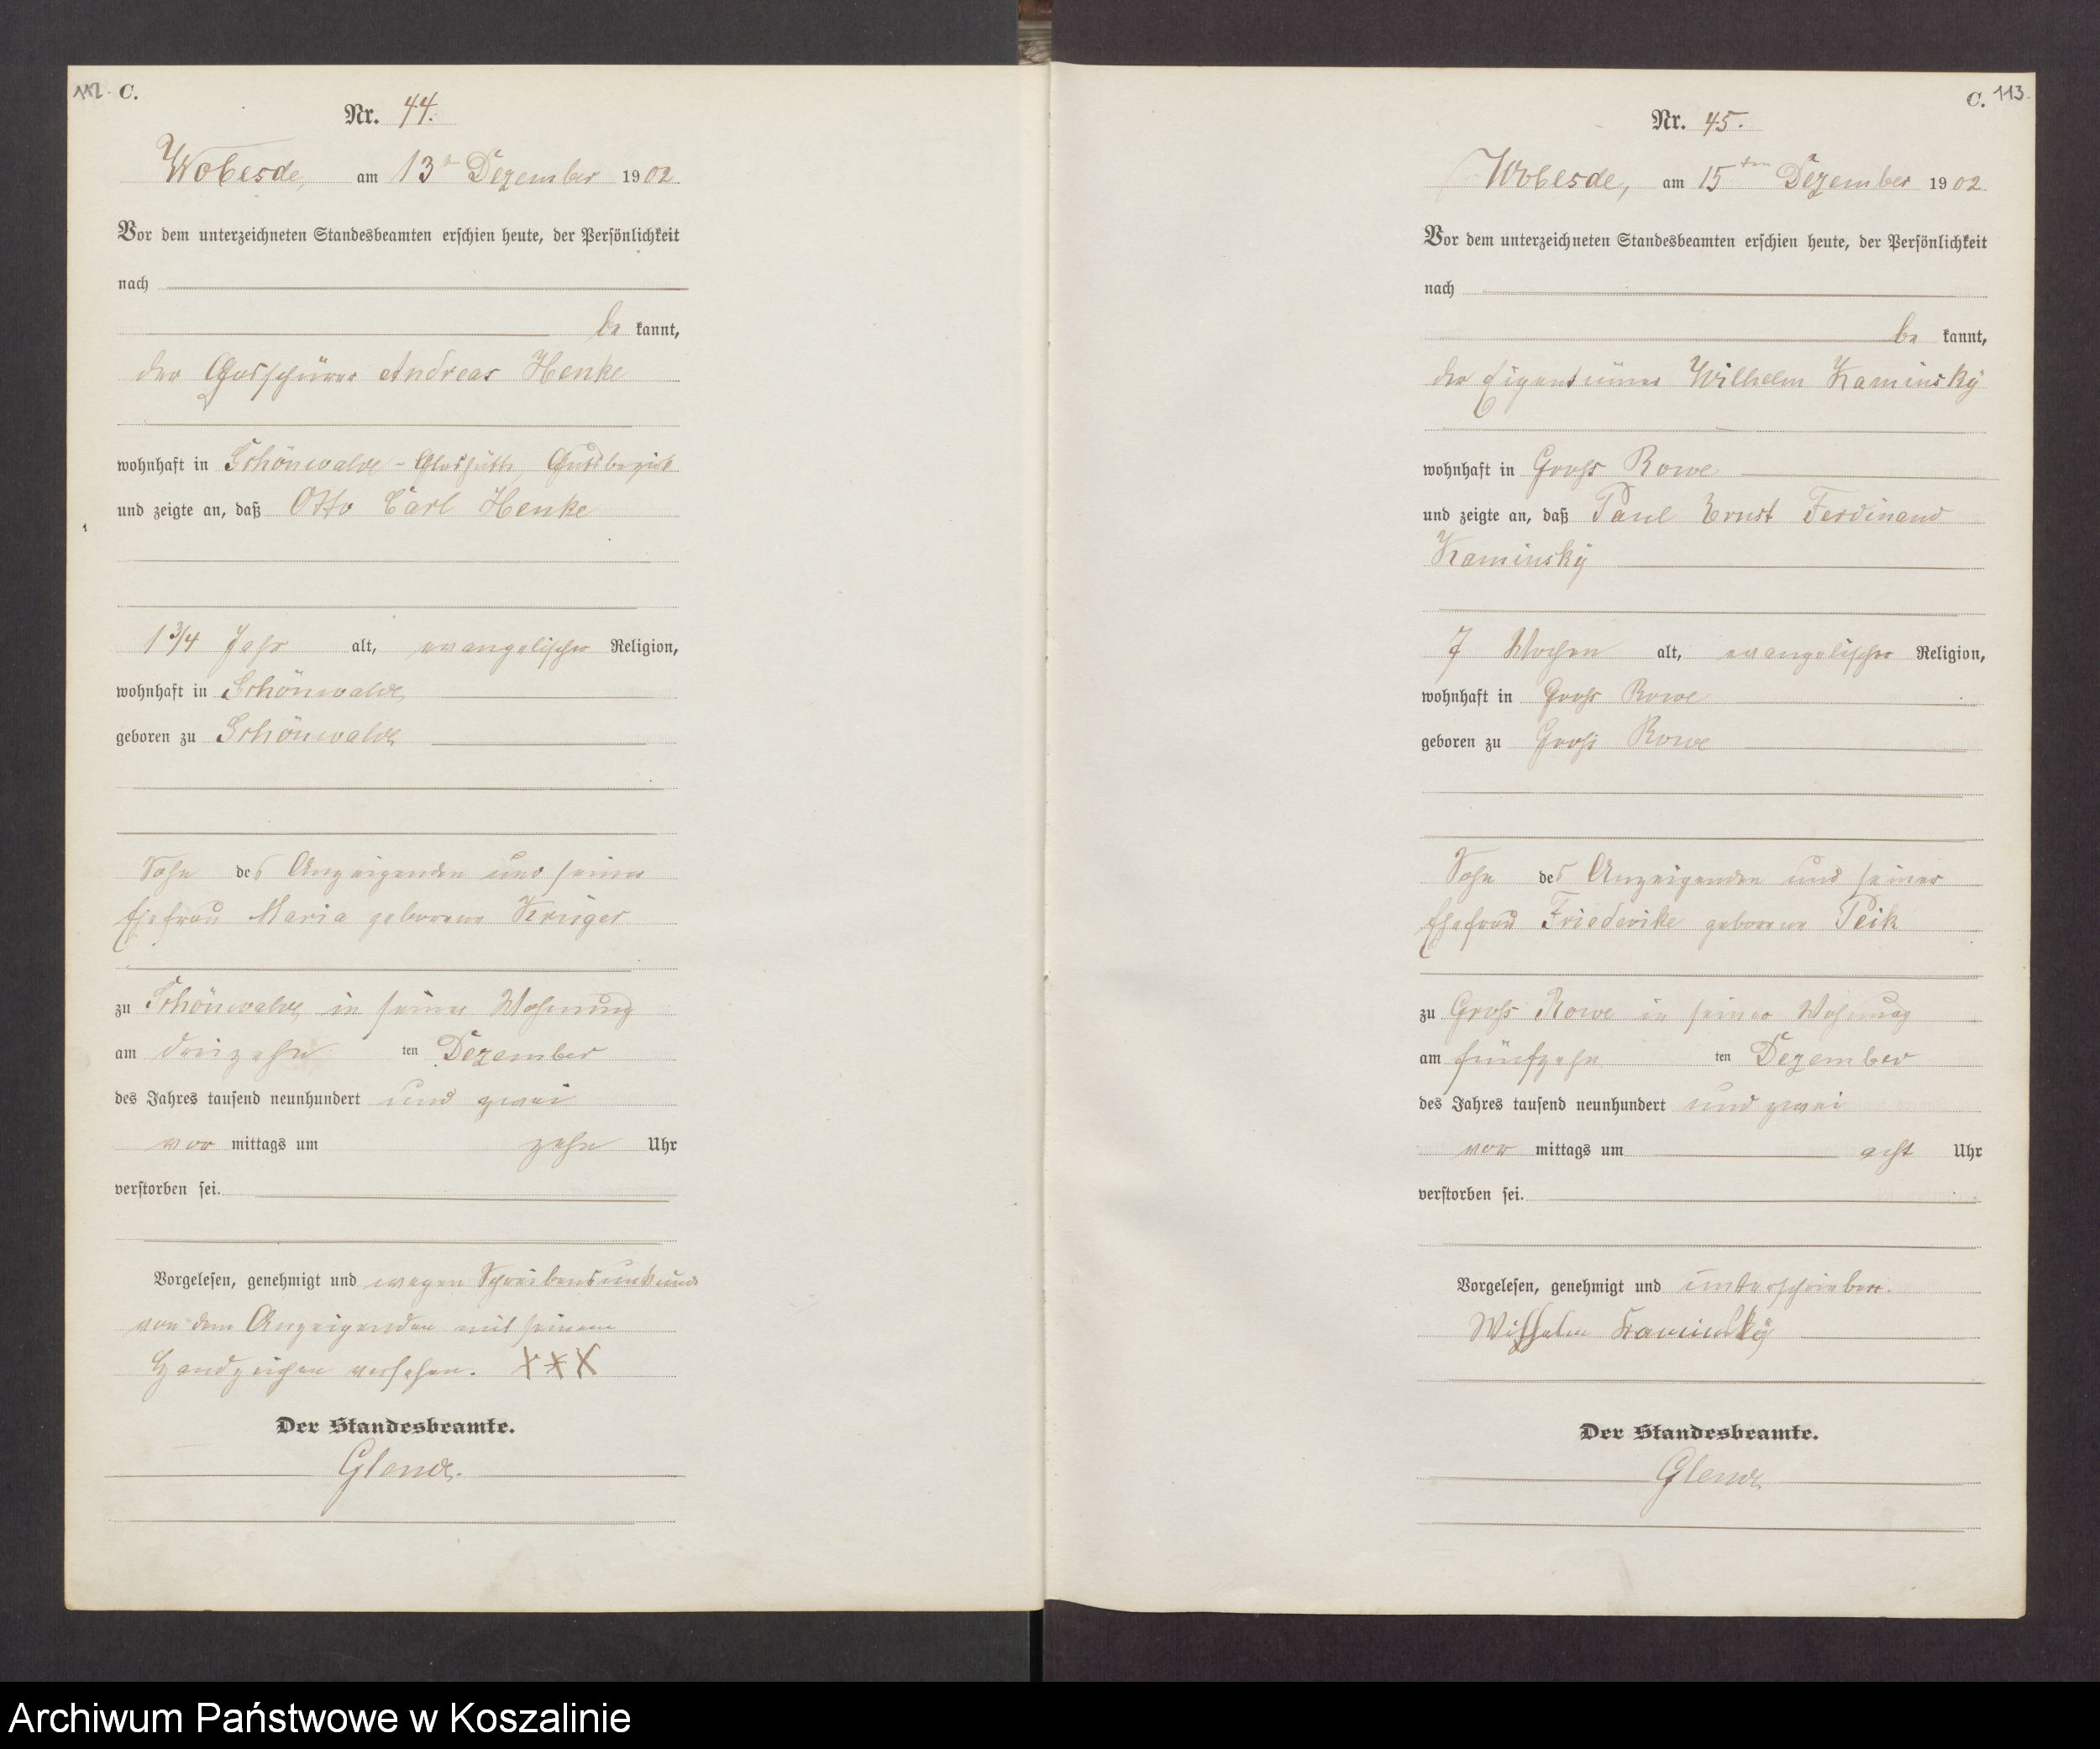 112. C.
Nr. 44.
Wobesde, am 13 Dezember 1902
Vor dem unterzeichneten Standesbeamten erschien heute, der Persönlichkeit
nach
be kannt,
der Andreas Henke
wohnhaft in Schönwalde - Glashütte, Gutsbezirk
und zeigte an, daß Otto Carl Henke
1 3/4 Jahr alt, evangelischer Religion,
wohnhaft in Schönwalde
geboren zu Schönwalde
Sohn des Anzeigenden und seiner
Ehefrau Maria geborene Krüger
zu Schönwalde in seiner Wohnung
am dreizehn ten Dezember
des Jahres tausend neunhundert und zwei
vor mittags um zehn Uhr
verstorben sei.
Vorgelesen, genehmigt und wegen Schreibensunkunde
von dem Anzeigenden mit seinem
Handzeichen versehen. XXX
Der Standesbeamte.
C. 113.
Nr. 45.
Wobesde, am 15ten Dezember 1902
Vor dem unterzeichneten Standesbeamten erschien heute, der Persönlichkeit
nach
be kannt,
der Eigentümer Wilhelm Kaminsky
wohnhaft in Groß Rowe
und zeigte an, daß Paul Ernst Ferdinand
Kaminsky
7 Wochen alt, evangelischer Religion,
wohnhaft in Groß Rowe
geboren zu Groß Rowe
Sohn des Anzeigenden und seiner
Ehefrau Friederike geborene Peik
zu Groß Rowe in seiner Wohnung
am fünfzehn ten Dezember
des Jahres tausend neunhundert und zwei
vor mittags um acht Uhr
verstorben sei.
Vorgelesen, genehmigt und unterschrieben.
Wilhelm Kaminsky
Der Standesbeamte.
Archiwum Państwowe w Koszalinie